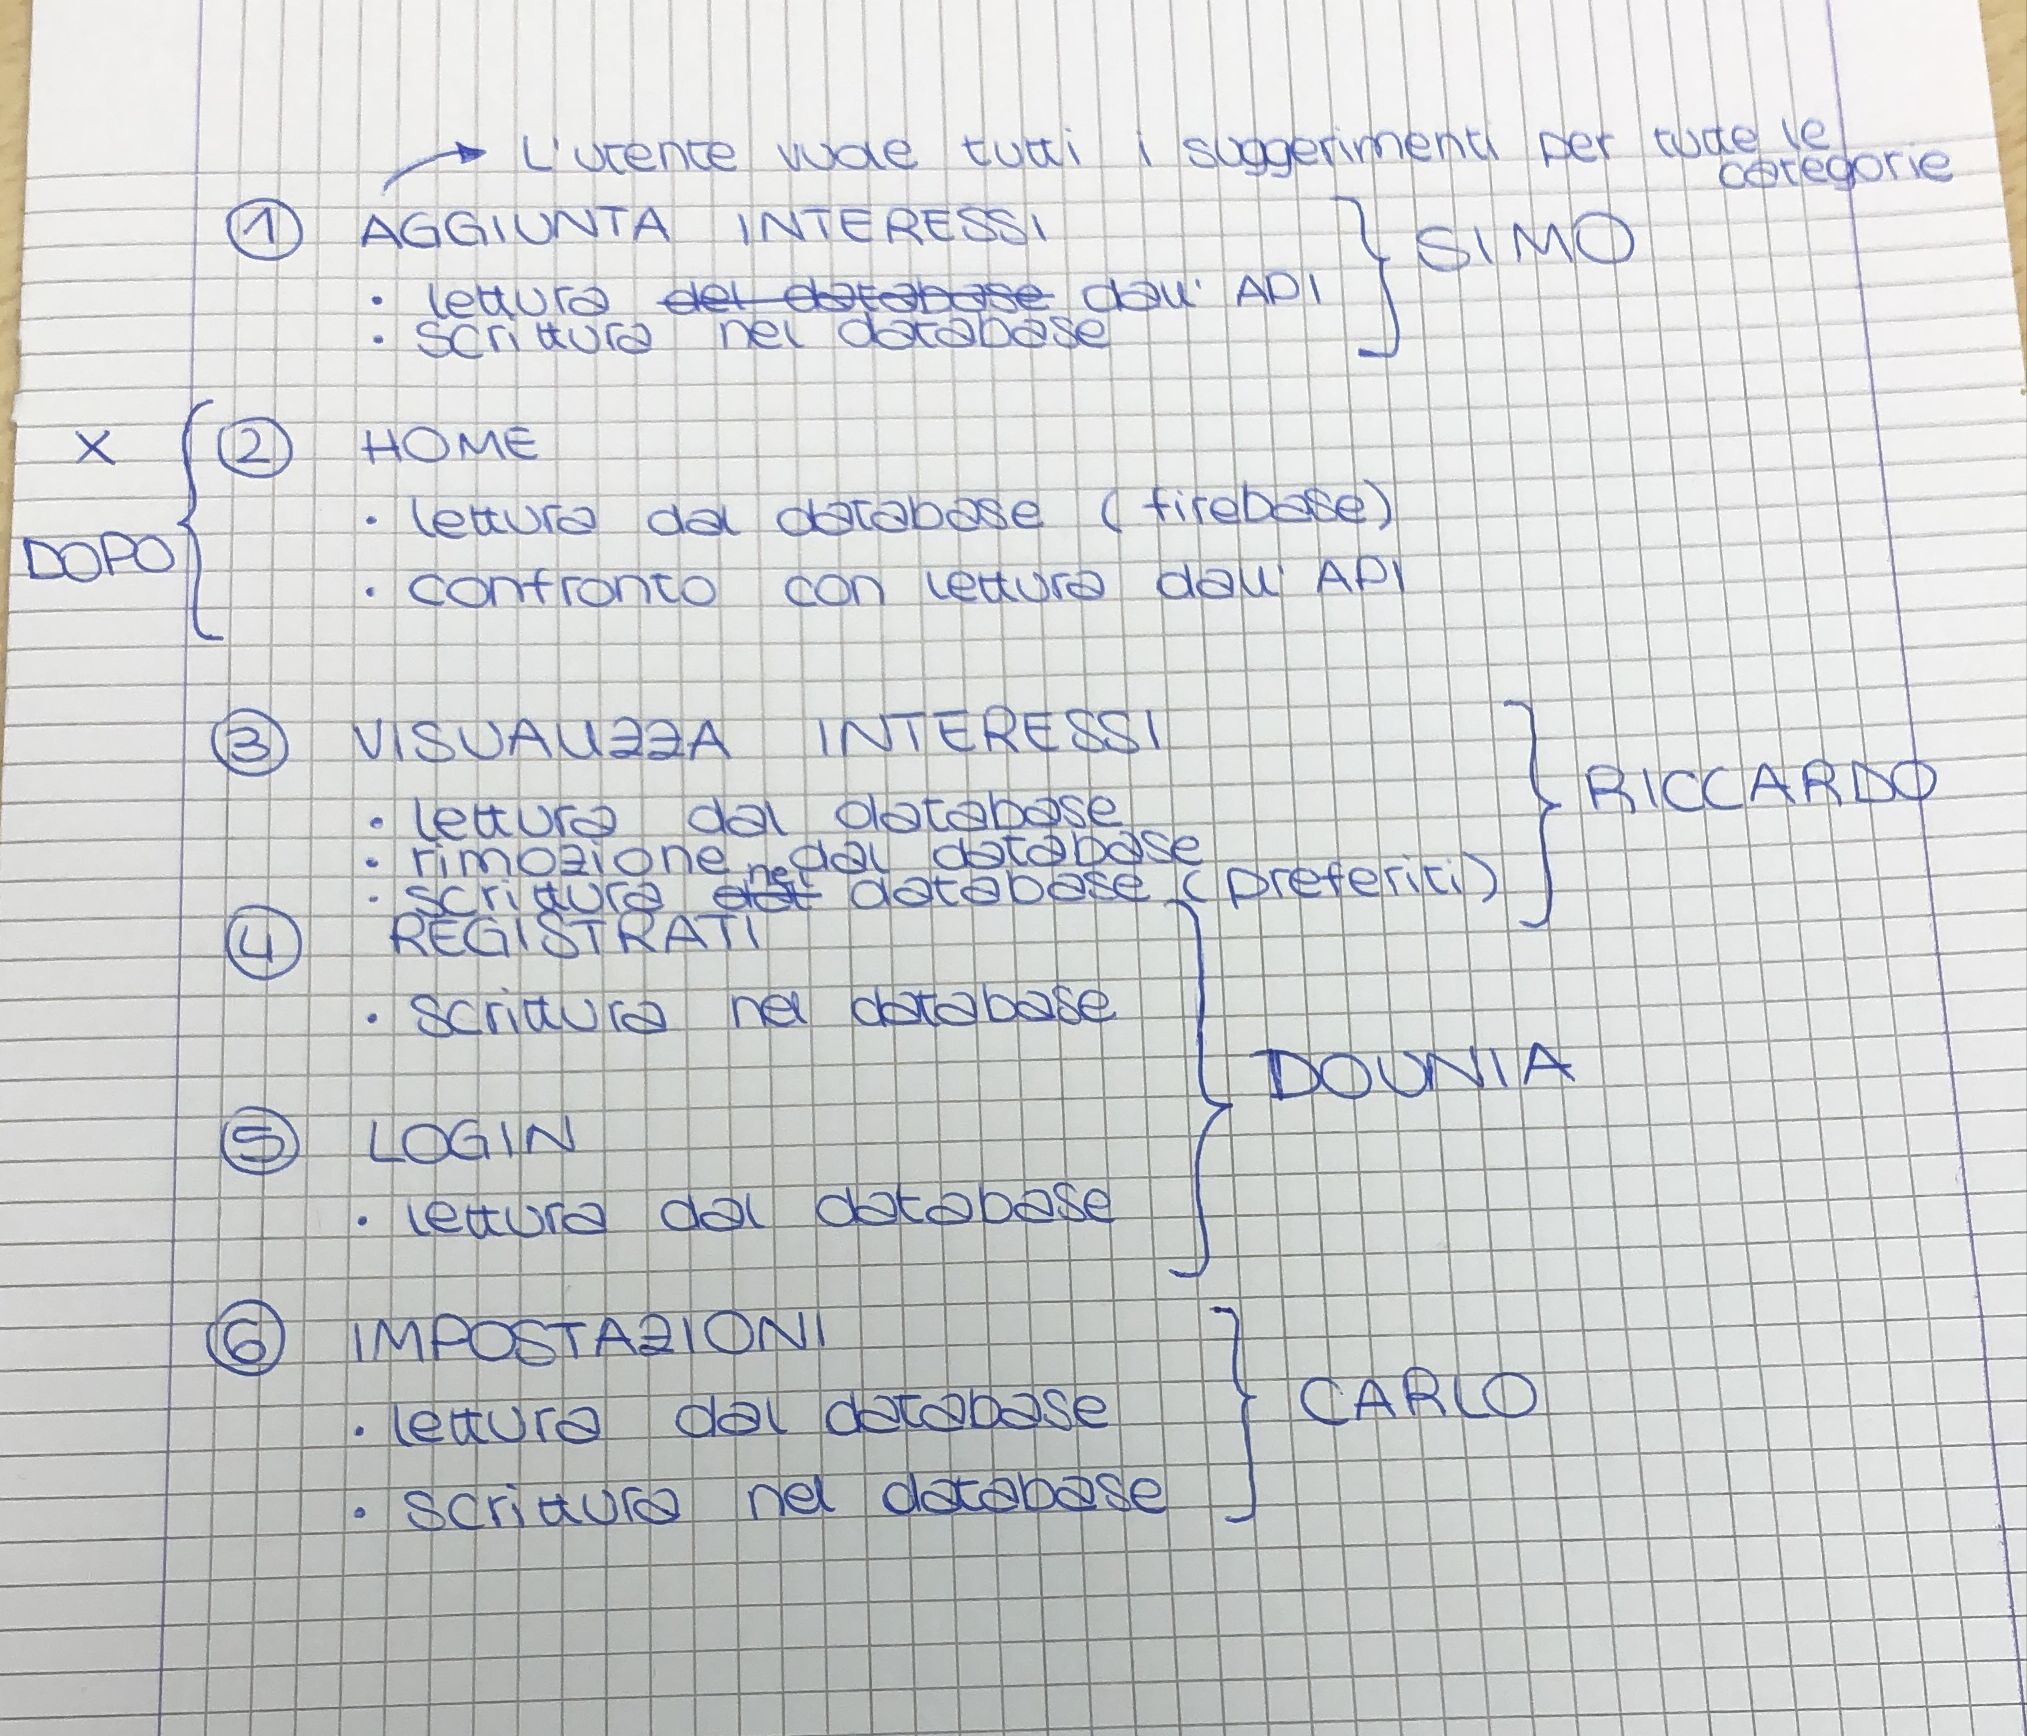 → L'utente vuole tutti i suggerimenti per tutte le
categorie
① AGGIUNTA INTERESSI } SIMO
• lettura del database dall' API
• scrittura nel database
X { ② HOME
• lettura dal database (firebase)
DOPO
• confronto con lettura dall' API
③ VISUALIZZA INTERESSI
} RICCARDO
• lettura dal database
• rimozione dal database
• scrittura dal nel database (preferiti)
④ REGISTRATI
• scrittura nel database
} DOUNIA
⑤ LOGIN
• lettura dal database
⑥ IMPOSTAZIONI
} CARLO
• lettura dal database
• scrittura nel database